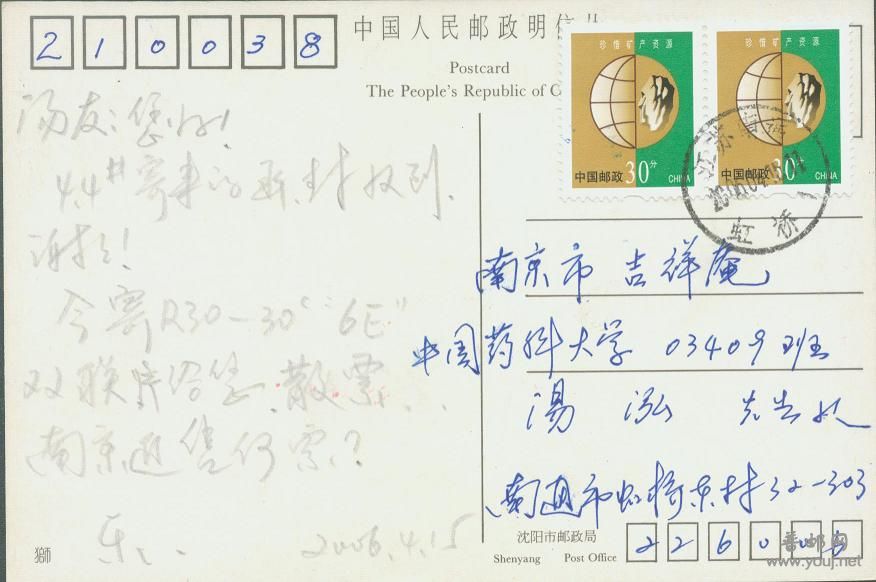 210038
中国人民邮政明信片
Postcard
The People's Republic of C
珍惜矿产资源
中国邮政 30分 CHINA
珍惜矿产资源
中国邮政 30分 CHINA
江苏南通
虹桥
汤友：您好！
4.4#寄来的 封收到.
谢谢！
今寄R30-30"6E"
双联片给您.散票
南京近售何票？
2006.4.15
南京市 吉祥庵
中国药科大学 03409班
汤 泓 先生收
南通市虹桥东村32-303
沈阳市邮政局
Shenyang Post Office
226006
狮
普邮网
www.youj.net